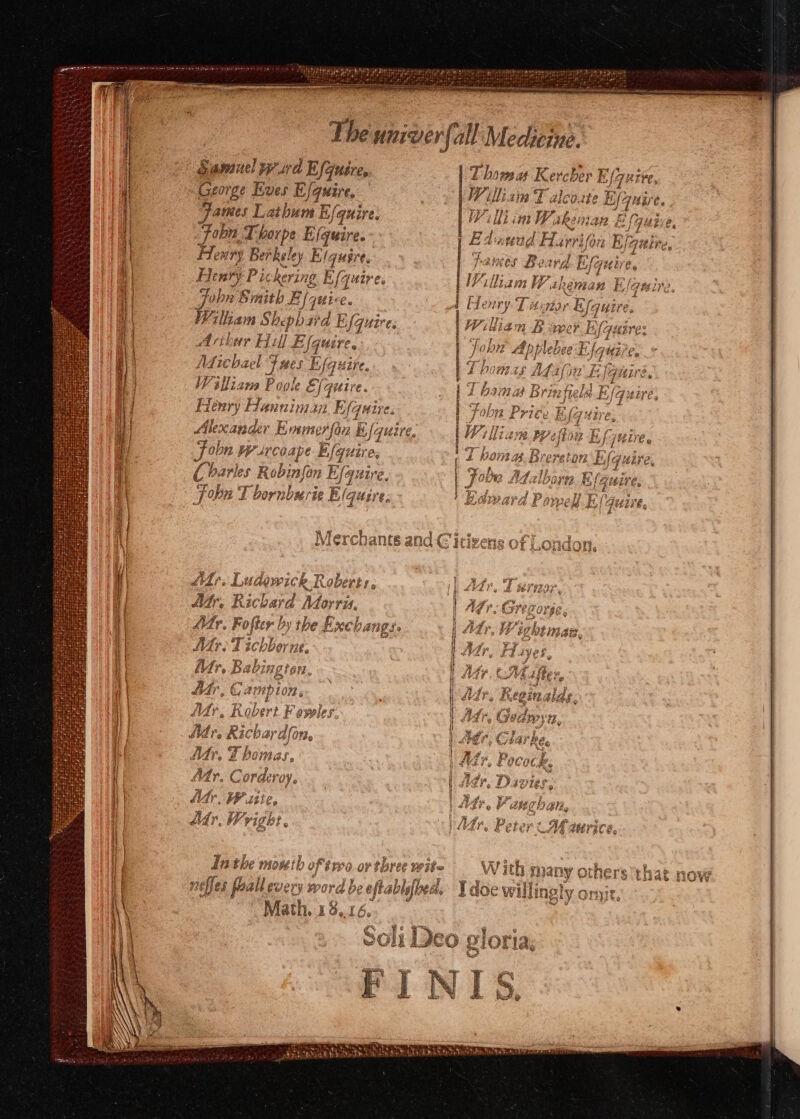 The univerſall Medicine.
Samuel Ward Eſquire,
George Eves Eſquire,
James Lathum Eſquire.
John Thorpe Eſquire.
Henry Berkeley Eſquire.
Henry Pickering Eſquire.
John Smith Eſquire.
William Shephard Eſquire.
Arthur Hill Eſquire.
Michael Jues Eſquire.
William Poole Eſquire.
Henry Hanniman Eſquire.
Alexander Emmerſon Eſquire,
John Warcoape Eſquire,
Charles Robinſon Eſquire.
John Thornburie Eſquire.
Thomas Kercher Eſquire,
William Talcoate Eſquire.
William Wakeman Eſquire,
Edmund Harriſon Eſquire,
James Beard Eſquire,
William Wakeman Eſquire.
Henry Eſquire.
William Eſquire:
John Applebee Eſquire.
Thomas Maſon Eſquire.
Thomas Brinfield Eſquire,
John Price Eſquire,
William Weſton Eſquire.
Thomas Brereton Eſquire,
John Malborn Eſquire,
Edward Powell Eſquire,
Merchants and Citizens of London.
Mr. Ludowick Roberts.
Mr. Richard Morris.
Mr. Foſter by the Exchange.
Mr. Tichborne.
Mr. Babington.
Mr. Campion.
Mr. Robert Fowler.
Mr. Richardſon,
Mr. Thomas.
Mr. Corderoy.
Mr. Waite,
Mr. Wright.
Mr. Turnor,
Mr. Gregorie,
Mr. Wightman,
Mr. Hayes,
Mr. Maſter,
Mr. Reginalds,
Mr. Godwyn,
Mr. Clarke,
Mr. Pocock,
Mr. Davies,
Mr. Vaughan,
Mr. Peter Maurice,
In the mouth of two or three wit-
neſſes ſhall every word be eſtabliſhed.
Math. 18. 16.
With many others that now
I doe willingly omit.
Soli Deo gloria,
FINIS.